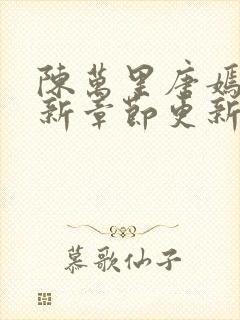 陳萬里唐嫣
新章節更新
慕歌仙子